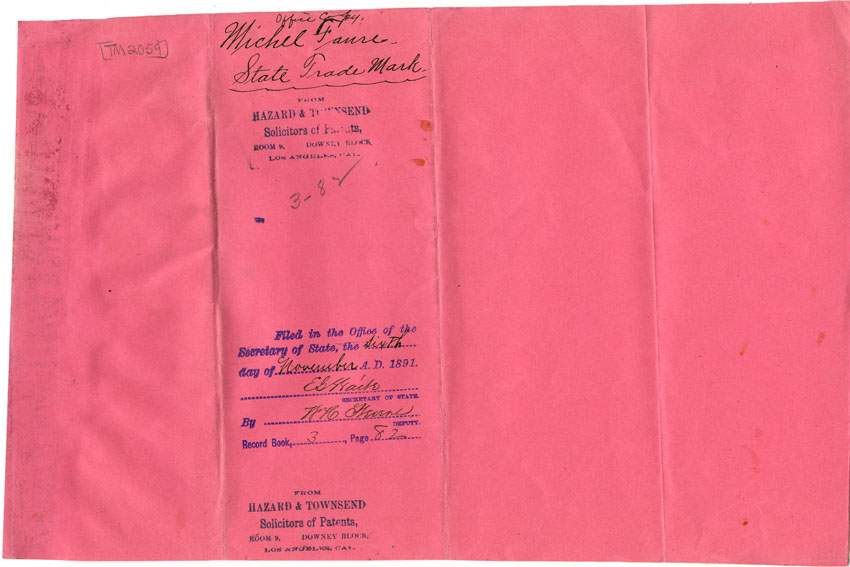 TM2059
Office Copy.
Michel Faure
State Trade Mark.
FROM
HAZARD & TOWNSEND
Solicitors of Patents,
ROOM 9, DOWNEY BLOCK,
LOS ANGELES, CAL.
3-82
Filed in the Office of the
Secretary of State, the sixth
day of November A. D. 1891.
E G Waite
SECRETARY OF STATE.
By W H
DEPUTY.
Record Book, 3, Page 82
FROM
HAZARD & TOWNSEND
Solicitors of Patents,
ROOM 9, DOWNEY BLOCK,
LOS ANGELES, CAL.